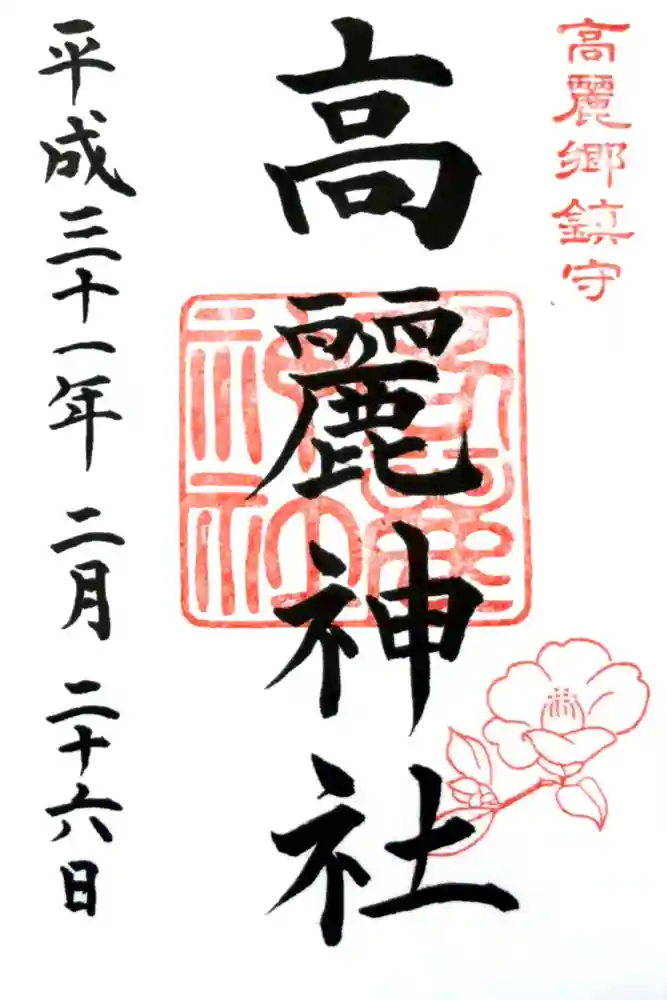 高麗郷鎮守
高麗神社
平成三十一年 二月 二十六日